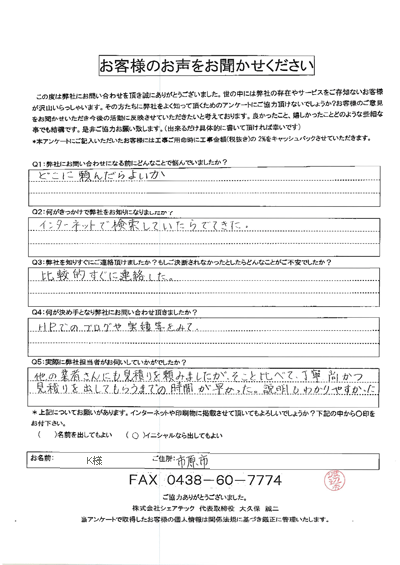 お客様のお声をお聞かせください
この度は弊社にお問い合わせを頂き誠にありがとうございました。世の中には弊社の存在やサービスをご存知ないお客様
が沢山いらっしゃいます。その方たちに弊社をよく知って頂くためのアンケートにご協力頂けないでしょうか？お客様のご意見
をお聞かせいただき今後の活動に反映させていただきたいと考えております。良かったこと、嬉しかったことどのような些細な
事でも結構です。是非ご協力お願い致します。（出来るだけ具体的に書いて頂ければ幸いです）
*本アンケートにご記入いただいたお客様には工事ご用命時に工事金額(税抜き)の2%をキャッシュバックさせていただきます。
Q1：弊社にお問い合わせになる前にどんなことで悩んでいましたか？
どこに頼んだらよいか
Q2：何がきっかけで弊社をお知りになりましたか？
インターネットで検索していたらでてきた。
Q3：弊社を知りすぐにご連絡頂けましたか？もしご決断されなかったとしたらどんなことがご不安でしたか？
比較的すぐに連絡した。
Q4：何が決め手となり弊社にお問い合わせ頂きましたか？
HPでのブログや実績等をみて、
Q5：実際に弊社担当者がお伺いしていかがでしたか？
他の業者さんにも見積りを頼みましたが、そこと比べて、丁寧尚かつ
見積りを出してもらうまでの時間が早かった。説明もわかりやすかった
＊上記についてお願いがあります。インターネットや印刷物に掲載させて頂いてもよろしいでしょうか？下記の中から〇印を
お付け下さい。
（　）名前を出してもよい　（〇）イニシャルなら出してもよい
お名前: K様 ご住所: 市原市
FAX 0438-60-7774
ご協力ありがとうございました。
株式会社シェアテック 代表取締役 大久保 誠二
当アンケートで取得したお客様の個人情報は関係法規に基づき厳正に管理いたします。